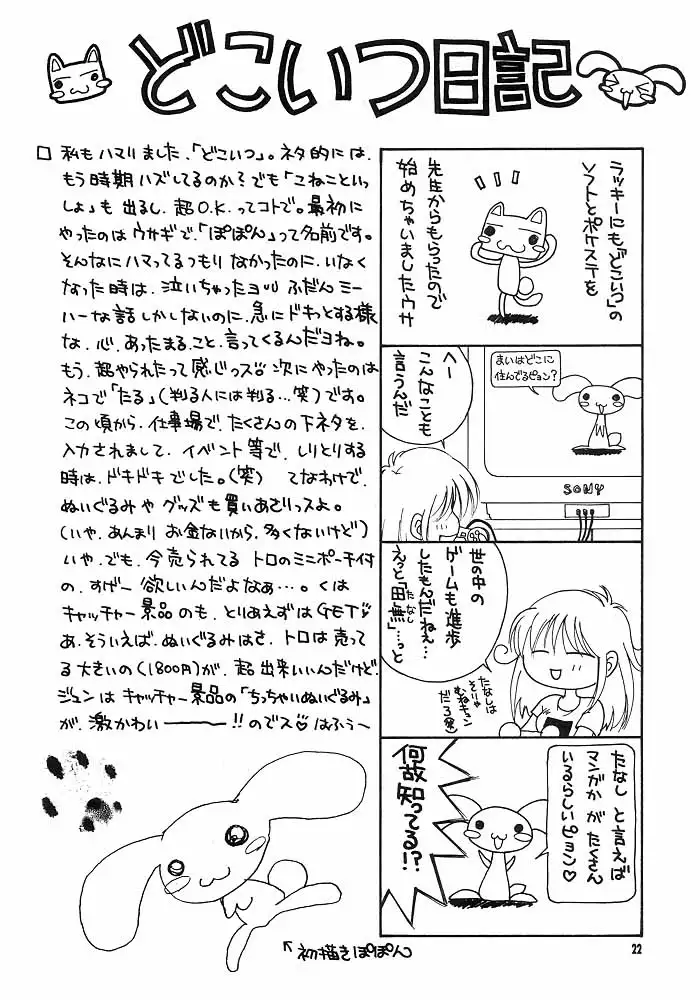 どこいつ日記
□ 私もハマりました、「どこいつ」。ネタ的には、
もう時期ハズしてるのか?でも「こねこといっ
しょ」も出るし、超O.K.ってコトで。最初に
やったのはウサギで、「ぽぽん」って名前です。
そんなにハマってるつもりなかったのに、いなく
なった時は、泣いちゃったヨ!! ふだんミー
ハーな話しかしないのに、急にドキっとする様
な、心、あったまること、言ってくるんだヨね。
もう、超やられたって感じっス♡ 次にやったのは
ネコで「たる」(判る人には判る…笑)です。
この頃から、仕事場で、たくさんの下ネタを、
入力されまして、イベント等で、しりとりする
時は、ドキドキでした。(笑) てなわけで、
ぬいぐるみやグッズも買いあさりっスよ。
(いや、あんまりお金ないから、多くないけど)
いや、でも、今売られてるトロのミニポーチ付
の、すげー欲しいんだよなぁ…。くは
キャッチャー景品のも、とりあえずはGET♡
あ、そういえば、ぬいぐるみはさ、トロは売って
る大きいの(1800円)が、超出来いいんだけど、
ジュンはキャッチャー景品の「ちっちゃいぬいぐるみ」
が、激かわい———!!のでス♡はふぅ〜
ラッキーにも「どこいつ」の
ソフトとポケステを
先生からもらったので
始めちゃいましたウサ
まいはどこに
住んでるピョン?
へー
こんなことも
言うんだ
SONY
世の中の
ゲームも進歩
したもんだねえ…
えっと「田無」…っと
たなし
たなしは
そりゃ
むねキュン
だろ(笑)
たなし と言えば
マンガか が たくさん
いるらしいピョン♡
何故知ってる!?
↖初描きぽぽん
22